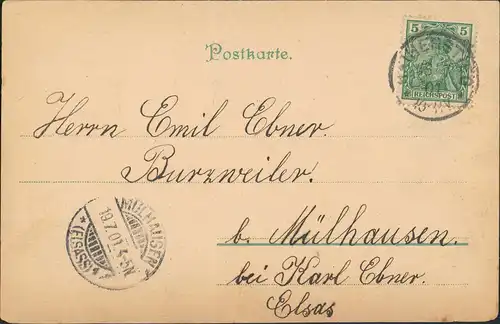 5 5
REICHSPOST
Postkarte.
Herrn Emil Ebner.
Burzweiler.
b. Mülhausen.
bei Karl Ebner.
Elsas
MÜLHAUSEN
19.7.01.4-5N.
* (ELSASS) *